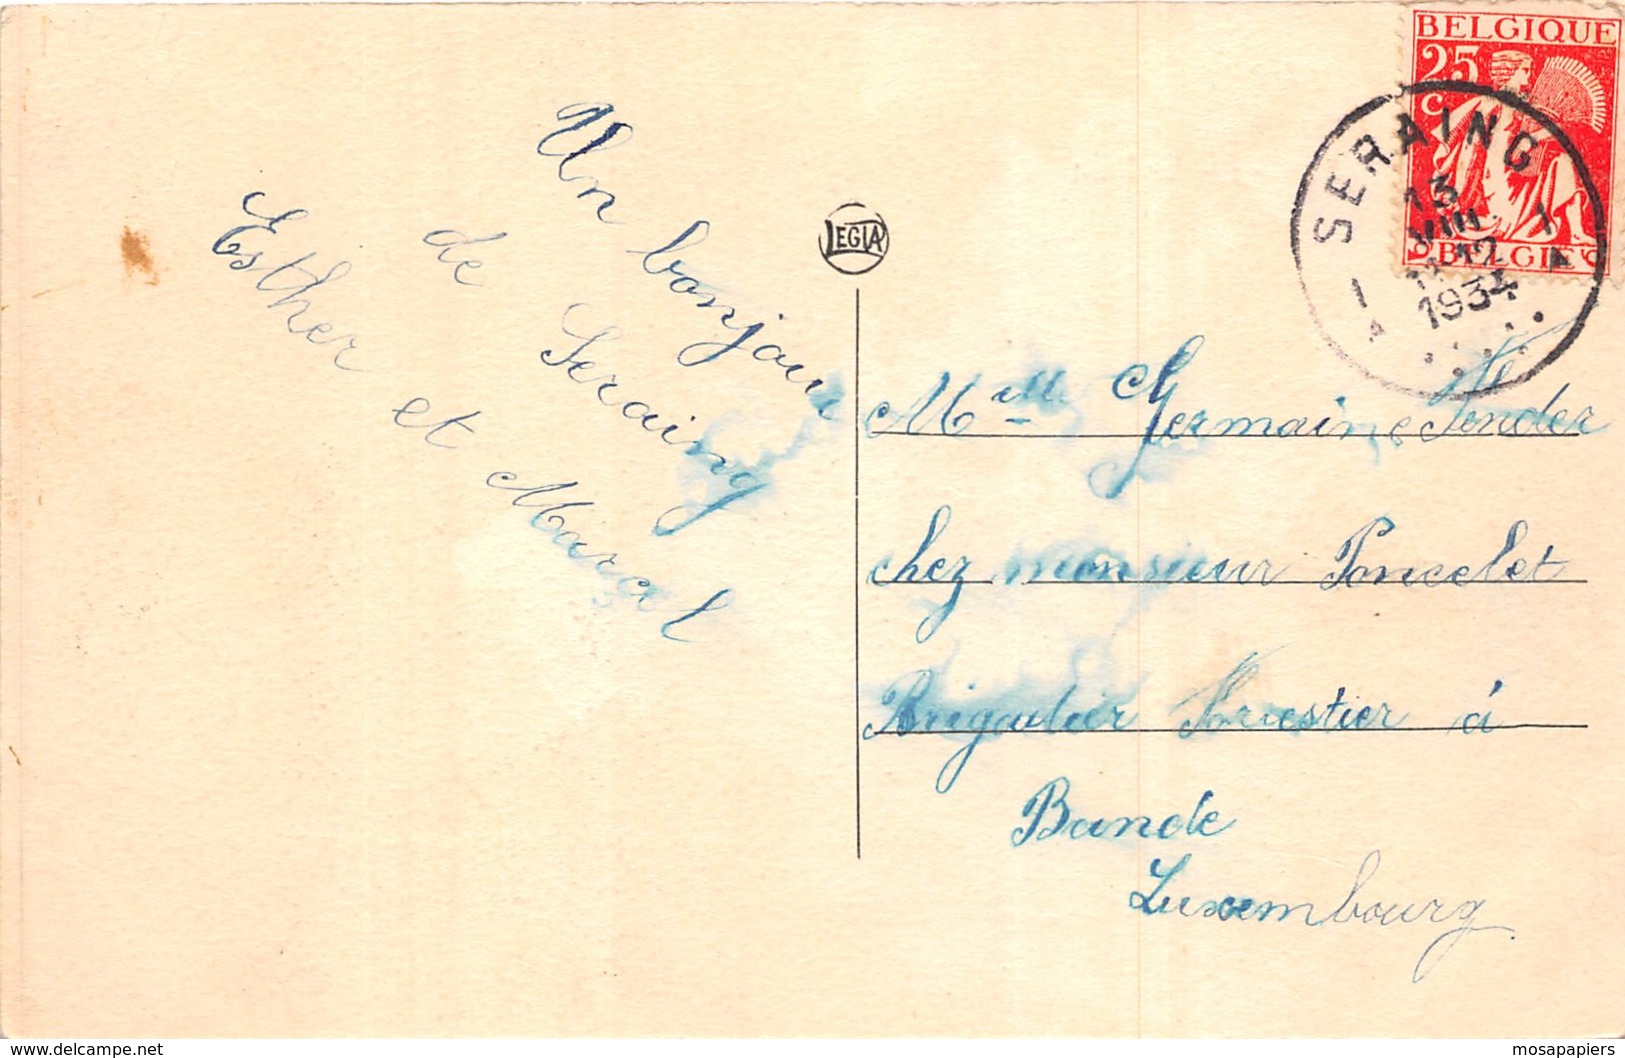 Un bonjour
de Seraing
Esther et Marcel
LEGIA
BELGIQUE
25
c
BELGIE
SERAING
13
VIII
11-12
1934
1
A
1
A
Melle Germaine
chez monsieur Poncelet
Brigadier Forestier à
Bande
Luxembourg
www.delcampe.net
mosapapiers